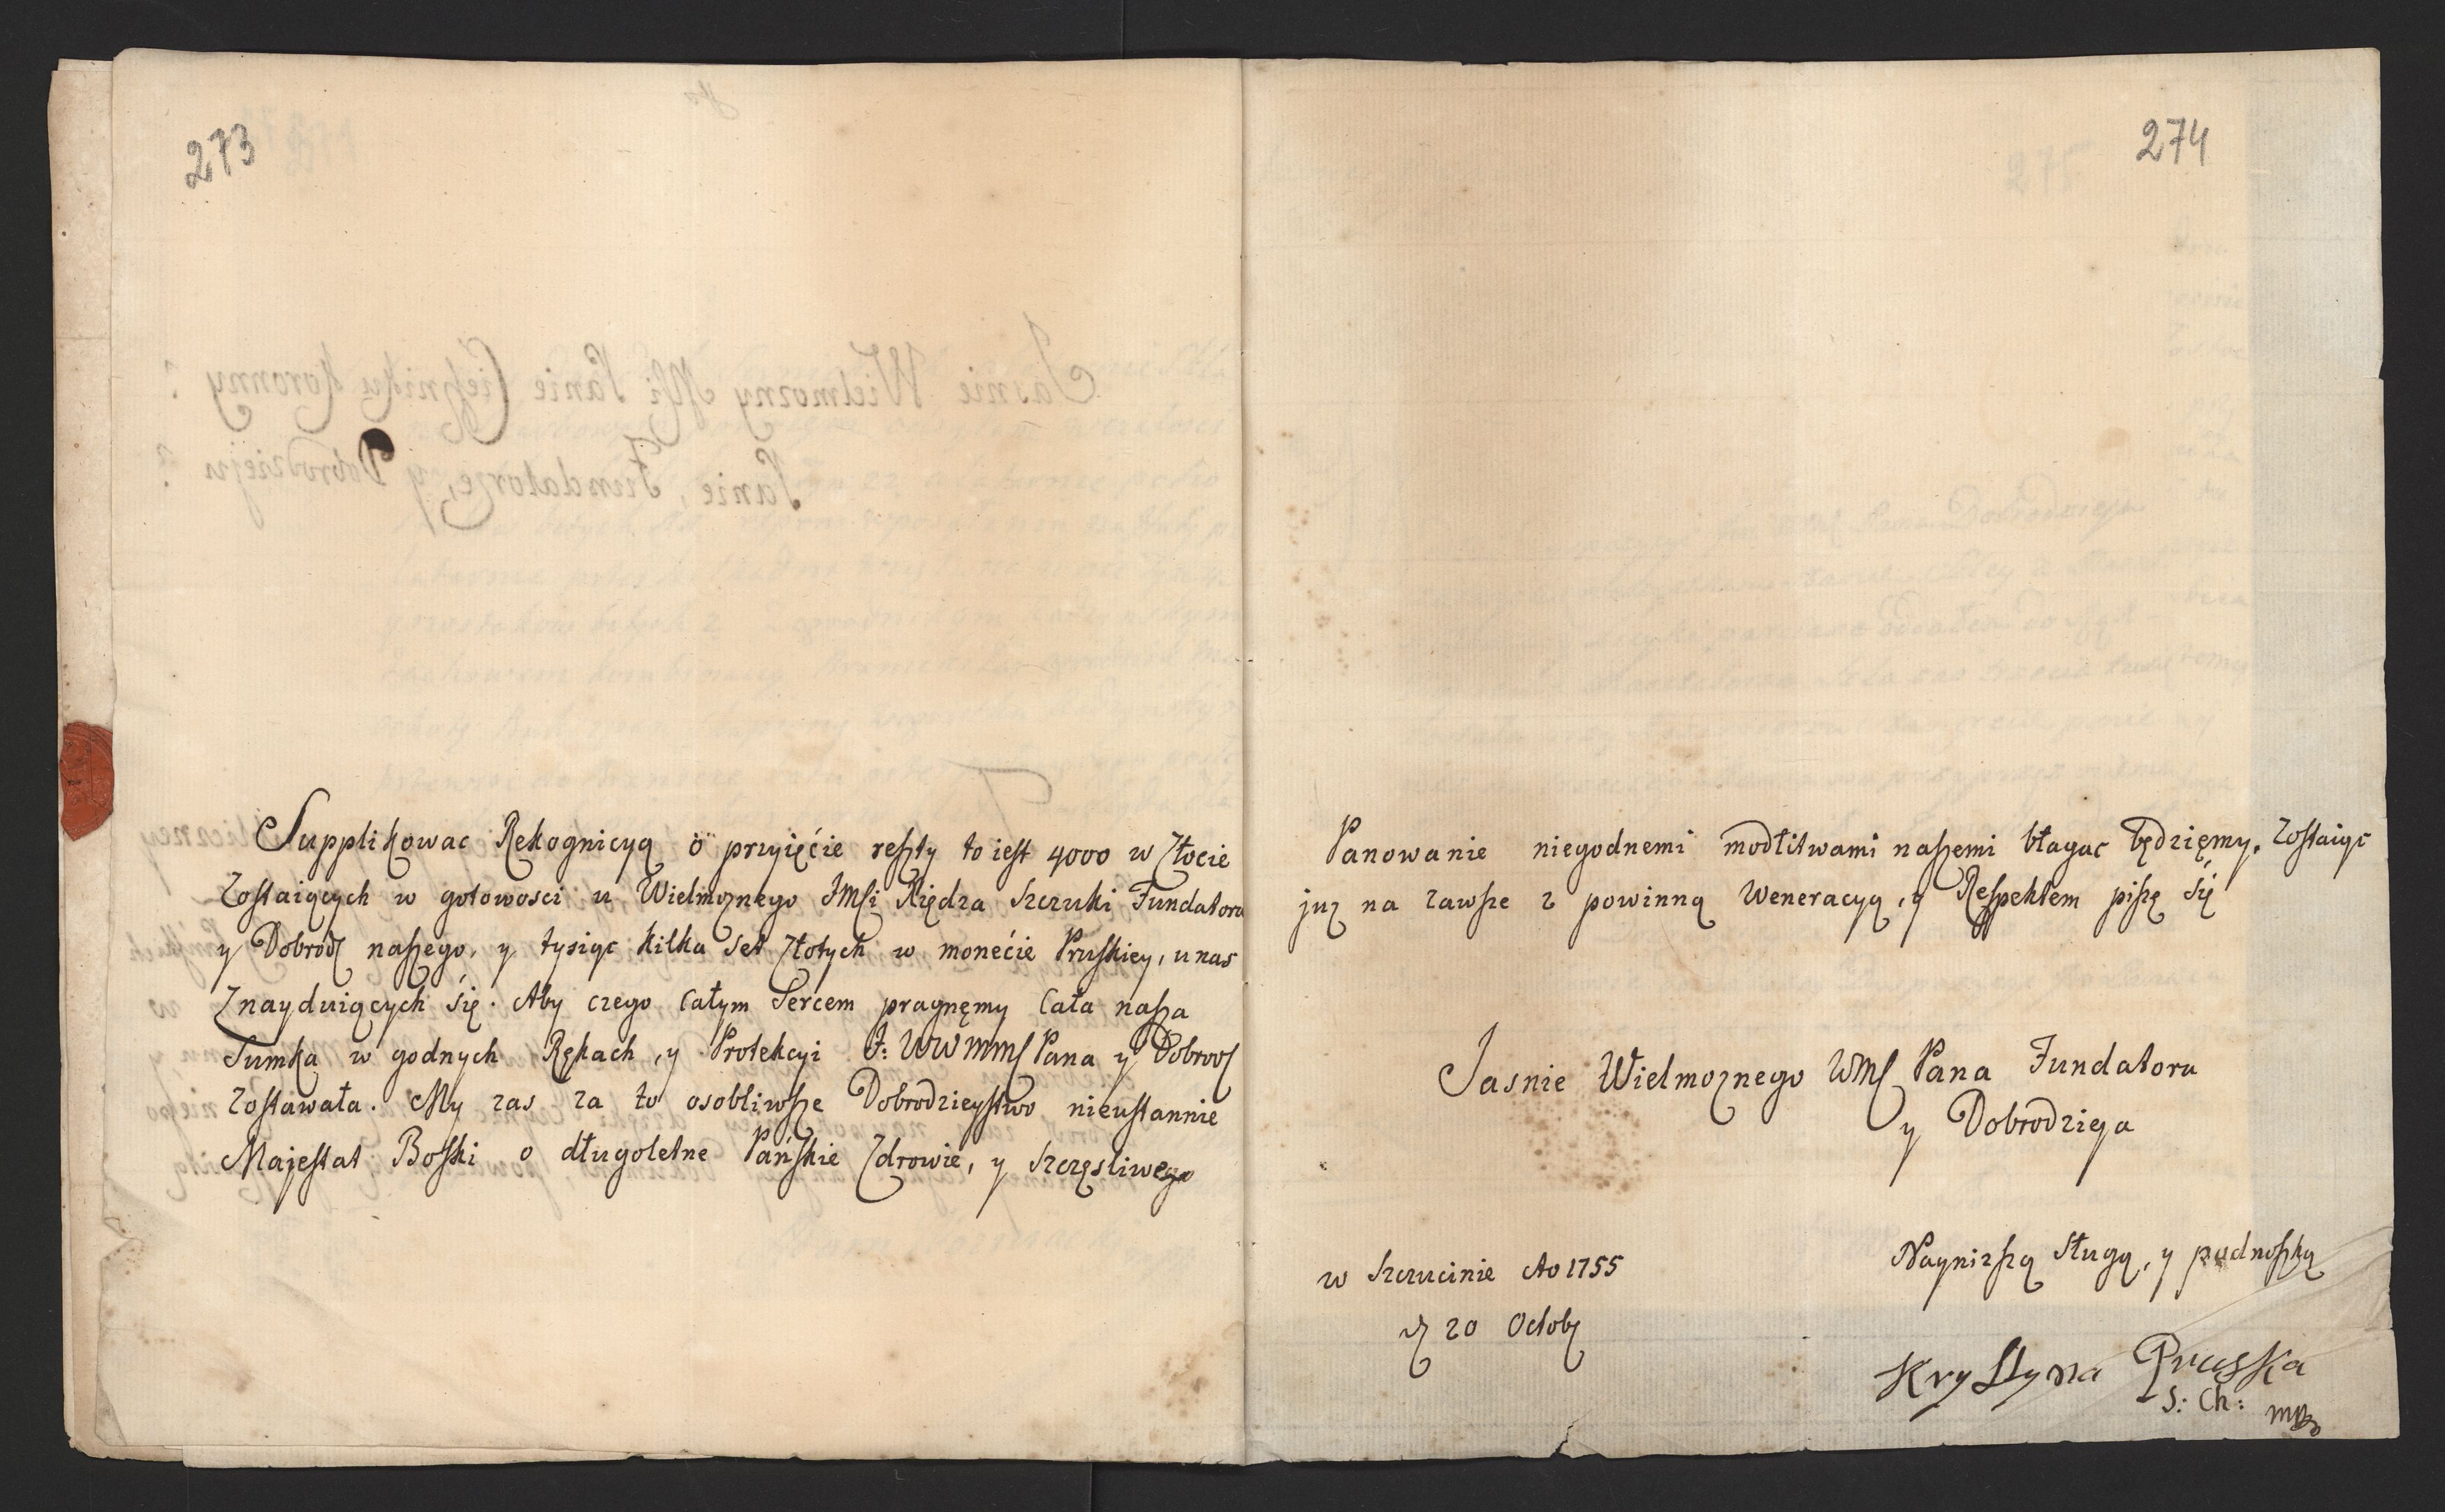 273
Supplikowac Rekognicyą o przyięćie reszty to iest 4000 w Złocie
Zostaiących w gotowosci u Wielmoznego JMSi Xiędza Szczuki Fundatora
y Dobrodz naszego, y tysiąc kilka set Złotych w monećie Pruskiey, u nas
Znayduiących Się. Aby czego Całym Sercem pragnęmy Cała nasza
Sumka w godnych Rękach, y Protekcyi J: WWMMS Pana y Dobrodz
Zostawała. My zas za to osobliwsze Dobrodzieystwo nieustannie
Majestat Boski o długoletne Pańskie Zdrowie, y Szczęsliwego
274
Panowanie niegodnemi modlitwami naszemi błagac będzięmy. Zostaiąc
juz na zawsze z powinną Weneracyą, y Respektem piszę Się
Jasnie Wielmoznego WMS Pana Fundatora
y Dobrodzieja
w Szczucinie Ao 1755
dz 20 Octobr
Naynizszą Sługą, y podnoszką
Krystyna Pruska
S: Ch: mpp